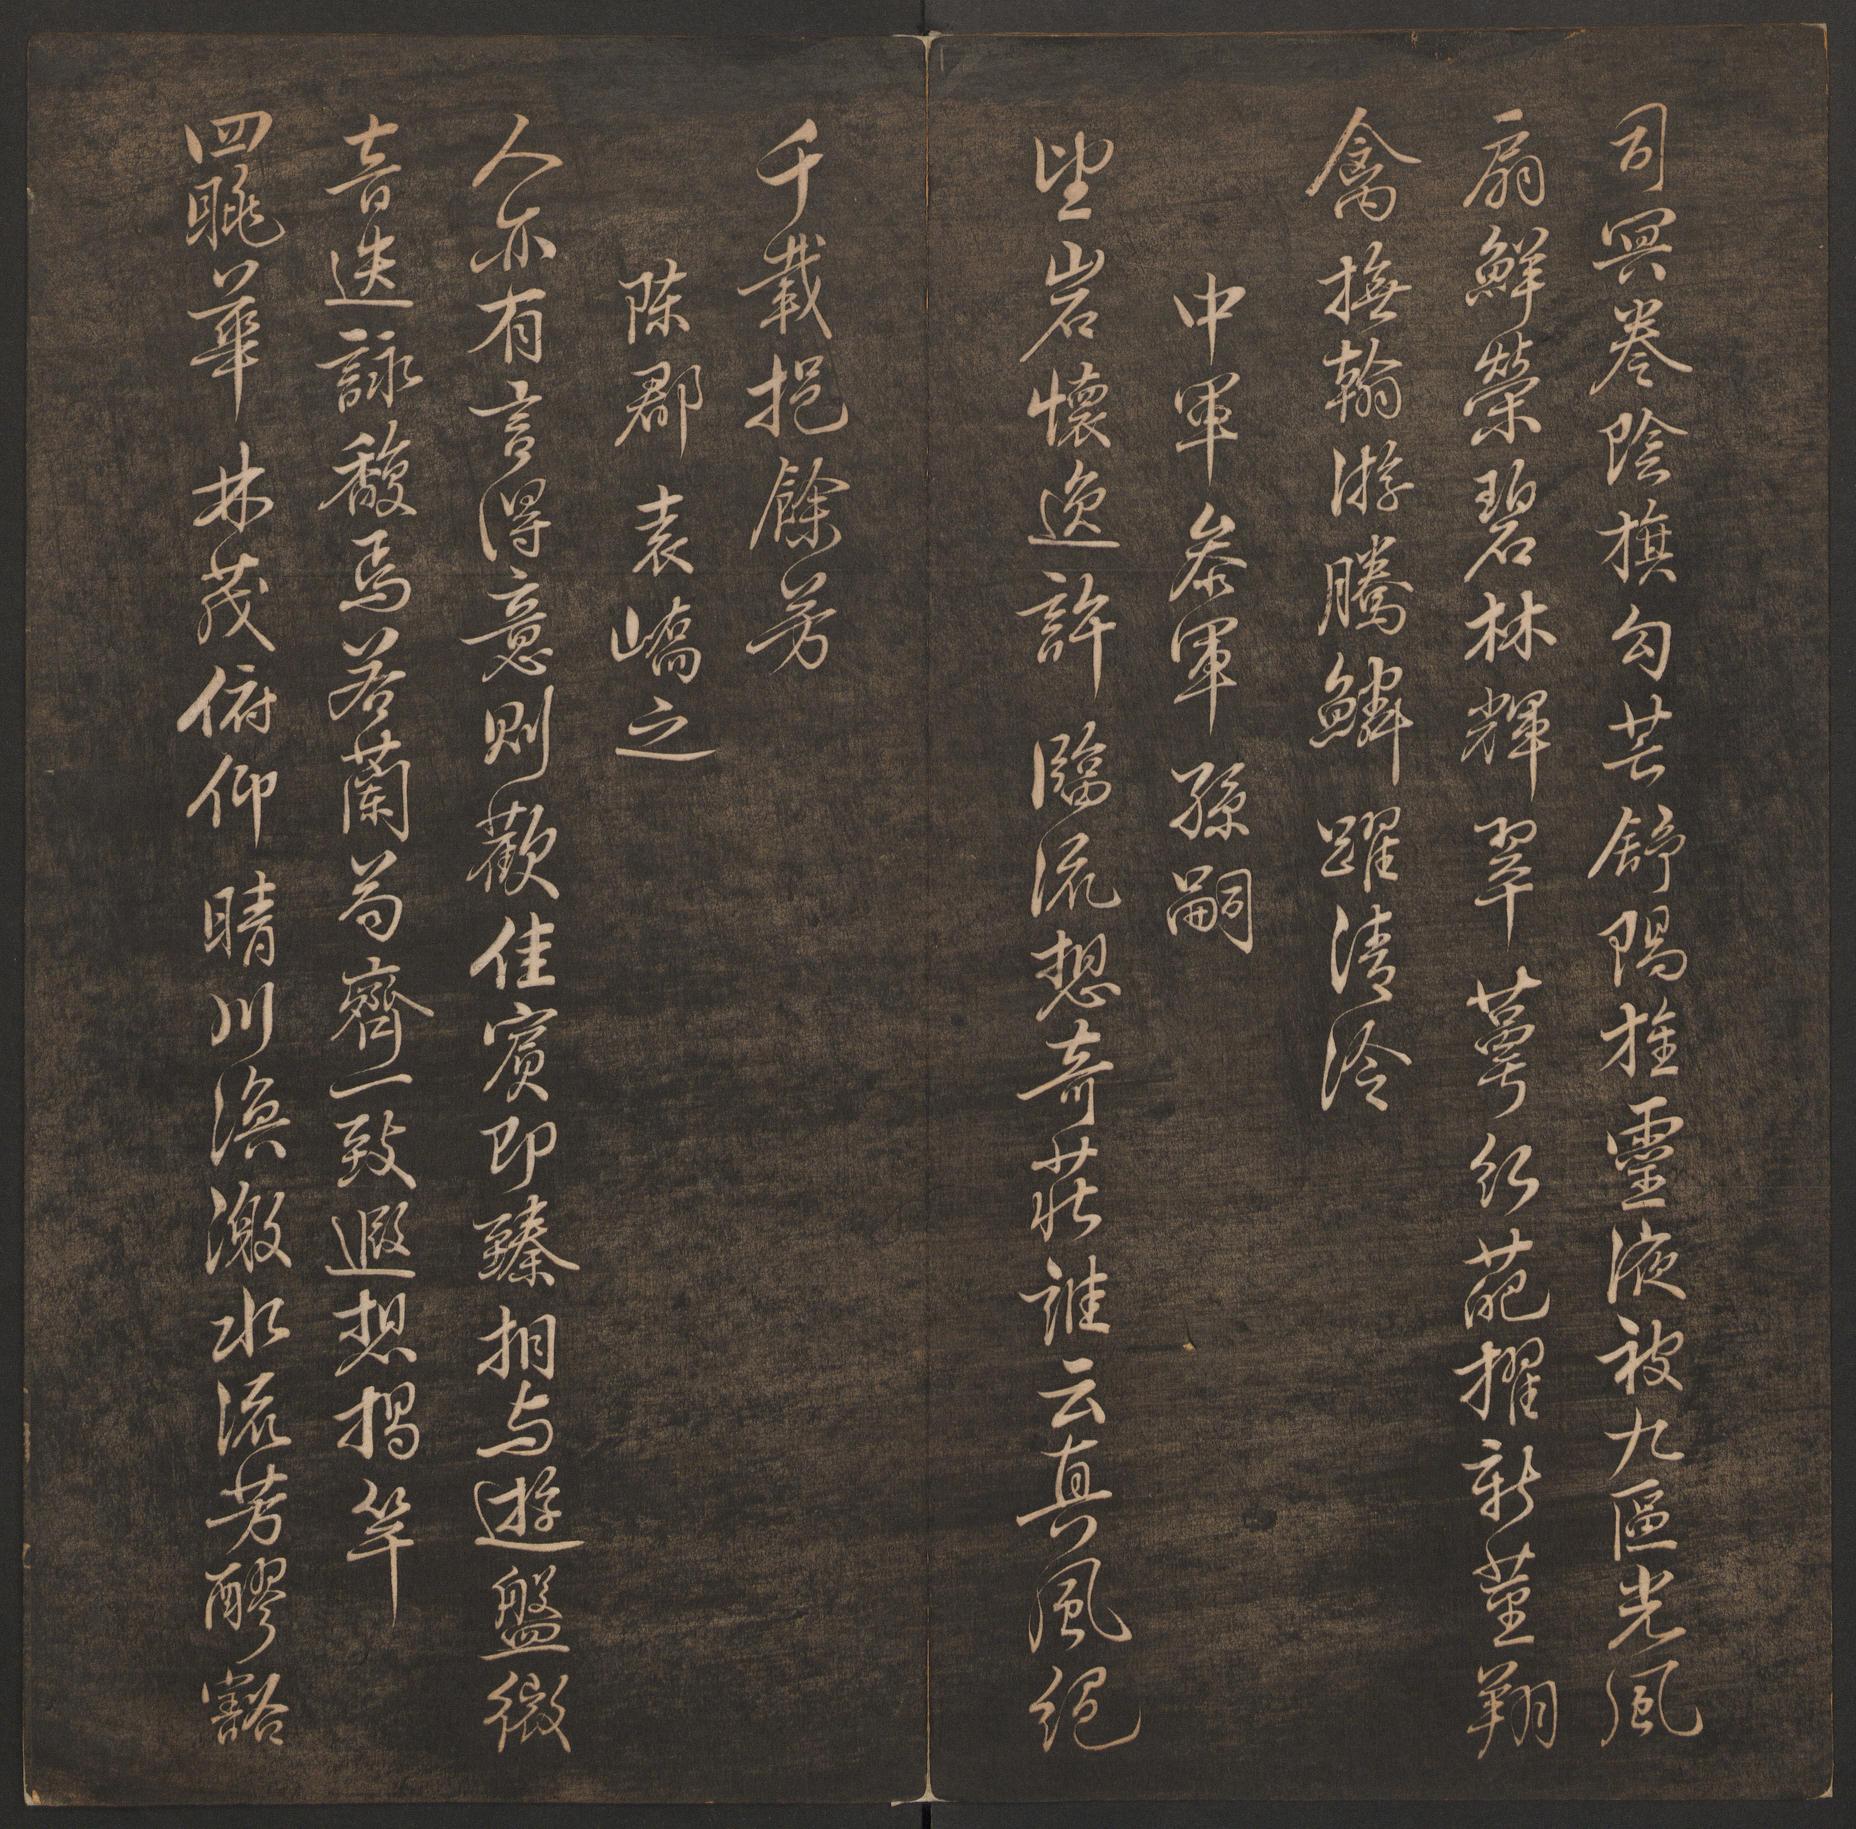 司冥卷陰旗勾芒舒陽旌靈液被九區光風
扇鮮榮碧林輝翠萼紅葩擢新莖翔
禽撫翰游騰鱗躍清泠
中軍參軍孫嗣
望岩懷逸許臨流想奇莊誰云真風絕
千載挹餘芳
陳郡袁嶠之
人亦有言得意則歡佳賓即臻相与遊盤微
音迭詠馥焉若蘭苟齊一致遐想揭竿
四眺華林茂俯仰晴川渙激水流芳醪豁